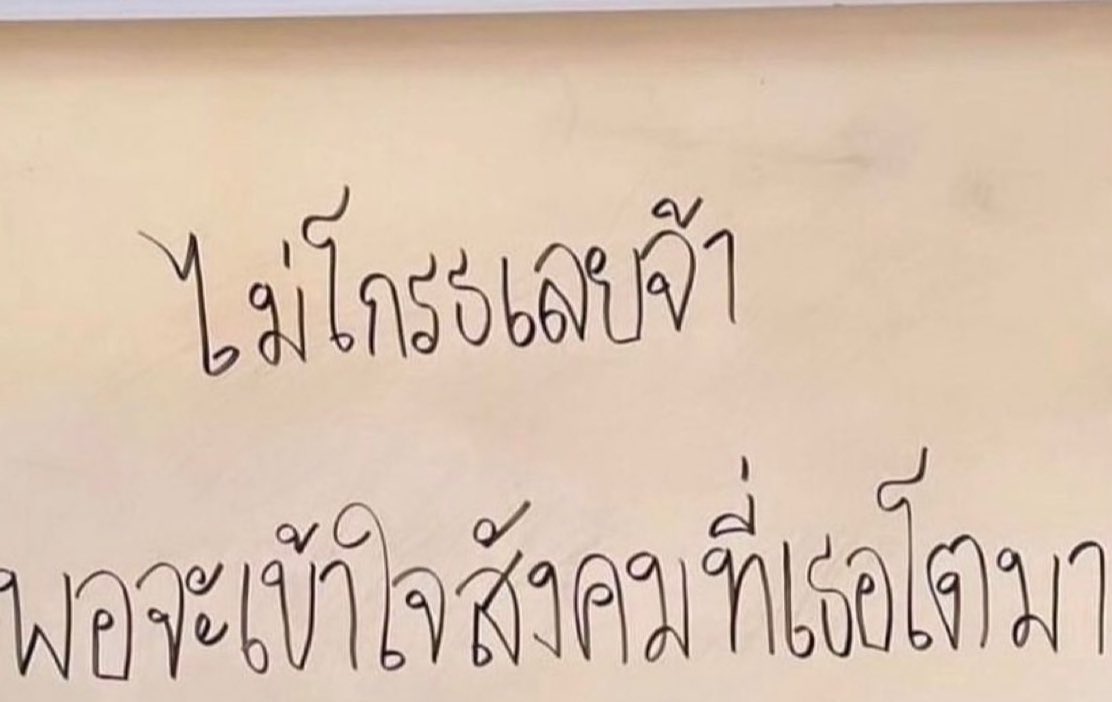 ไม่โกรธเลยจ้า
พอจะเข้าใจสังคมที่เธอโตมา